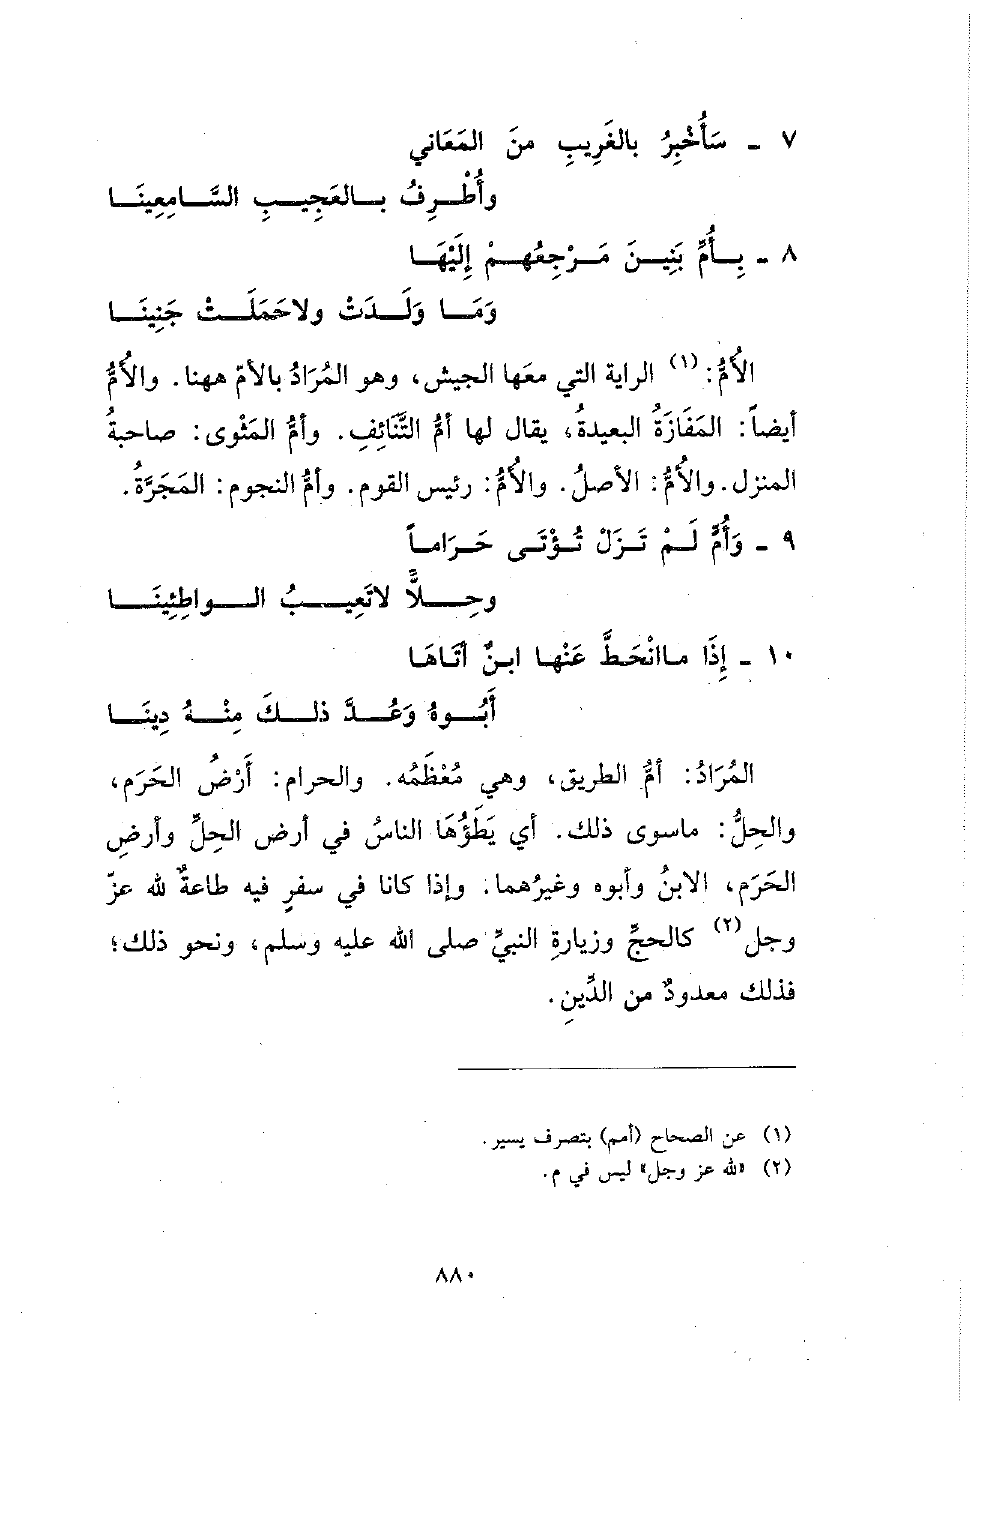 ٧ - سَأُخْبِرُ بالغَرِيبِ منَ المَعَاني
وأُطْرِفُ بالعَجِيبِ السَّامِعِينَا
٨ - بِأُمِّ بَنِينَ مَرْجِعُهمْ إِلَيْهَا
وَمَا وَلَدَتْ ولاحَمَلَتْ جَنِينَا
الأُمُّ: (١) الراية التي معَها الجيش، وهو المُرَادُ بالأمّ ههنا. والأُمُّ
أيضاً: المَفَازَةُ البعيدةُ، يقال لها أمُّ التَّنَائِفِ. وأمُّ المَثْوى: صاحبةُ
المنزل. والأُمُّ: الأصلُ. والأُمُّ: رئيس القوم. وأمُّ النجوم: المَجَرَّةُ.
٩ - وَأُمٍّ لَمْ تَزَلْ تُؤْتَى حَرَاماً
وحِلاًّ لاتَعِيبُ الواطِئِينَا
١٠ - إِذَا ماانْحَطَّ عَنْها ابنٌ أتَاهَا
أَبُوهُ وَعُدَّ ذلكَ مِنْهُ دِينَا
المُرَادُ: أمُّ الطريق، وهي مُعْظَمُه. والحرام: أَرْضُ الحَرَم،
والحِلُّ: ماسوى ذلك. أي يَطَؤُهَا الناسُ في أرض الحِلِّ وأرضِ
الحَرَم، الابنُ وأبوه وغيرُهما. وإذا كانا في سفرٍ فيه طاعةٌ لله عزّ
وجل(٢) كالحجِّ وزيارةِ النبيِّ صلى الله عليه وسلم، ونحو ذلك؛
فذلك معدودٌ من الدِّينِ.
(١) عن الصحاح (أمم) بتصرف يسير.
(٢) «لله عز وجل» ليس في م.
٨٨٠